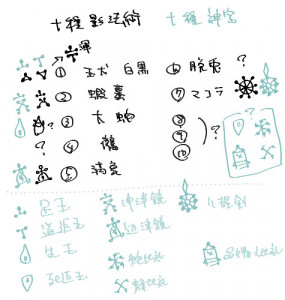 十種影法術 十種神宝
渾
① 玉犬 白黒 ⑥ 脱兎
② 蝦蟇 ⑦ マコラ
? ③ 大蛇 ⑧ ?
④ 鵺 ⑨ ?
⑤ 満象 ⑩
足玉 沖津鏡 八握剣
道返玉 辺津鏡
生玉 蛇比礼 品物比礼
死返玉 蜂比礼